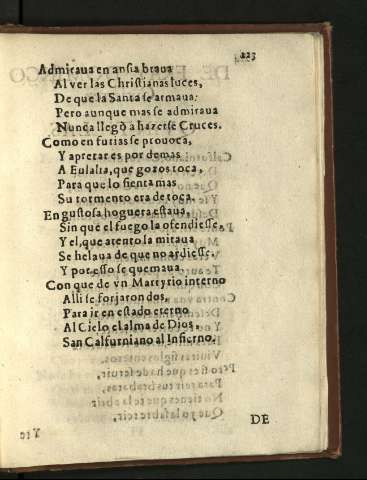 223
Admiraua en ansia braua
Al ver las Christianas luces,
De que la Santa se armaua;
Pero aunque mas se admiraua
Nunca llegò a hazerse Cruces.
Como en furias se prouoca,
Y apretar es por demas
A Eulalia, que gozos toca,
Para que lo sienta mas
Su tormento era de toca.
En gustosa hoguera estaua,
Sin que el fuego la ofendiesse,
Y el, que atento la miraua
Se helaua de que no ardiesse,
Y por esso se quemaua.
Con que de vn Martyrio interno
Alli se forjaron dos,
Para ir en estado eterno
Al Cielo el alma de Dios,
San Calfurniano al Infierno.
DE